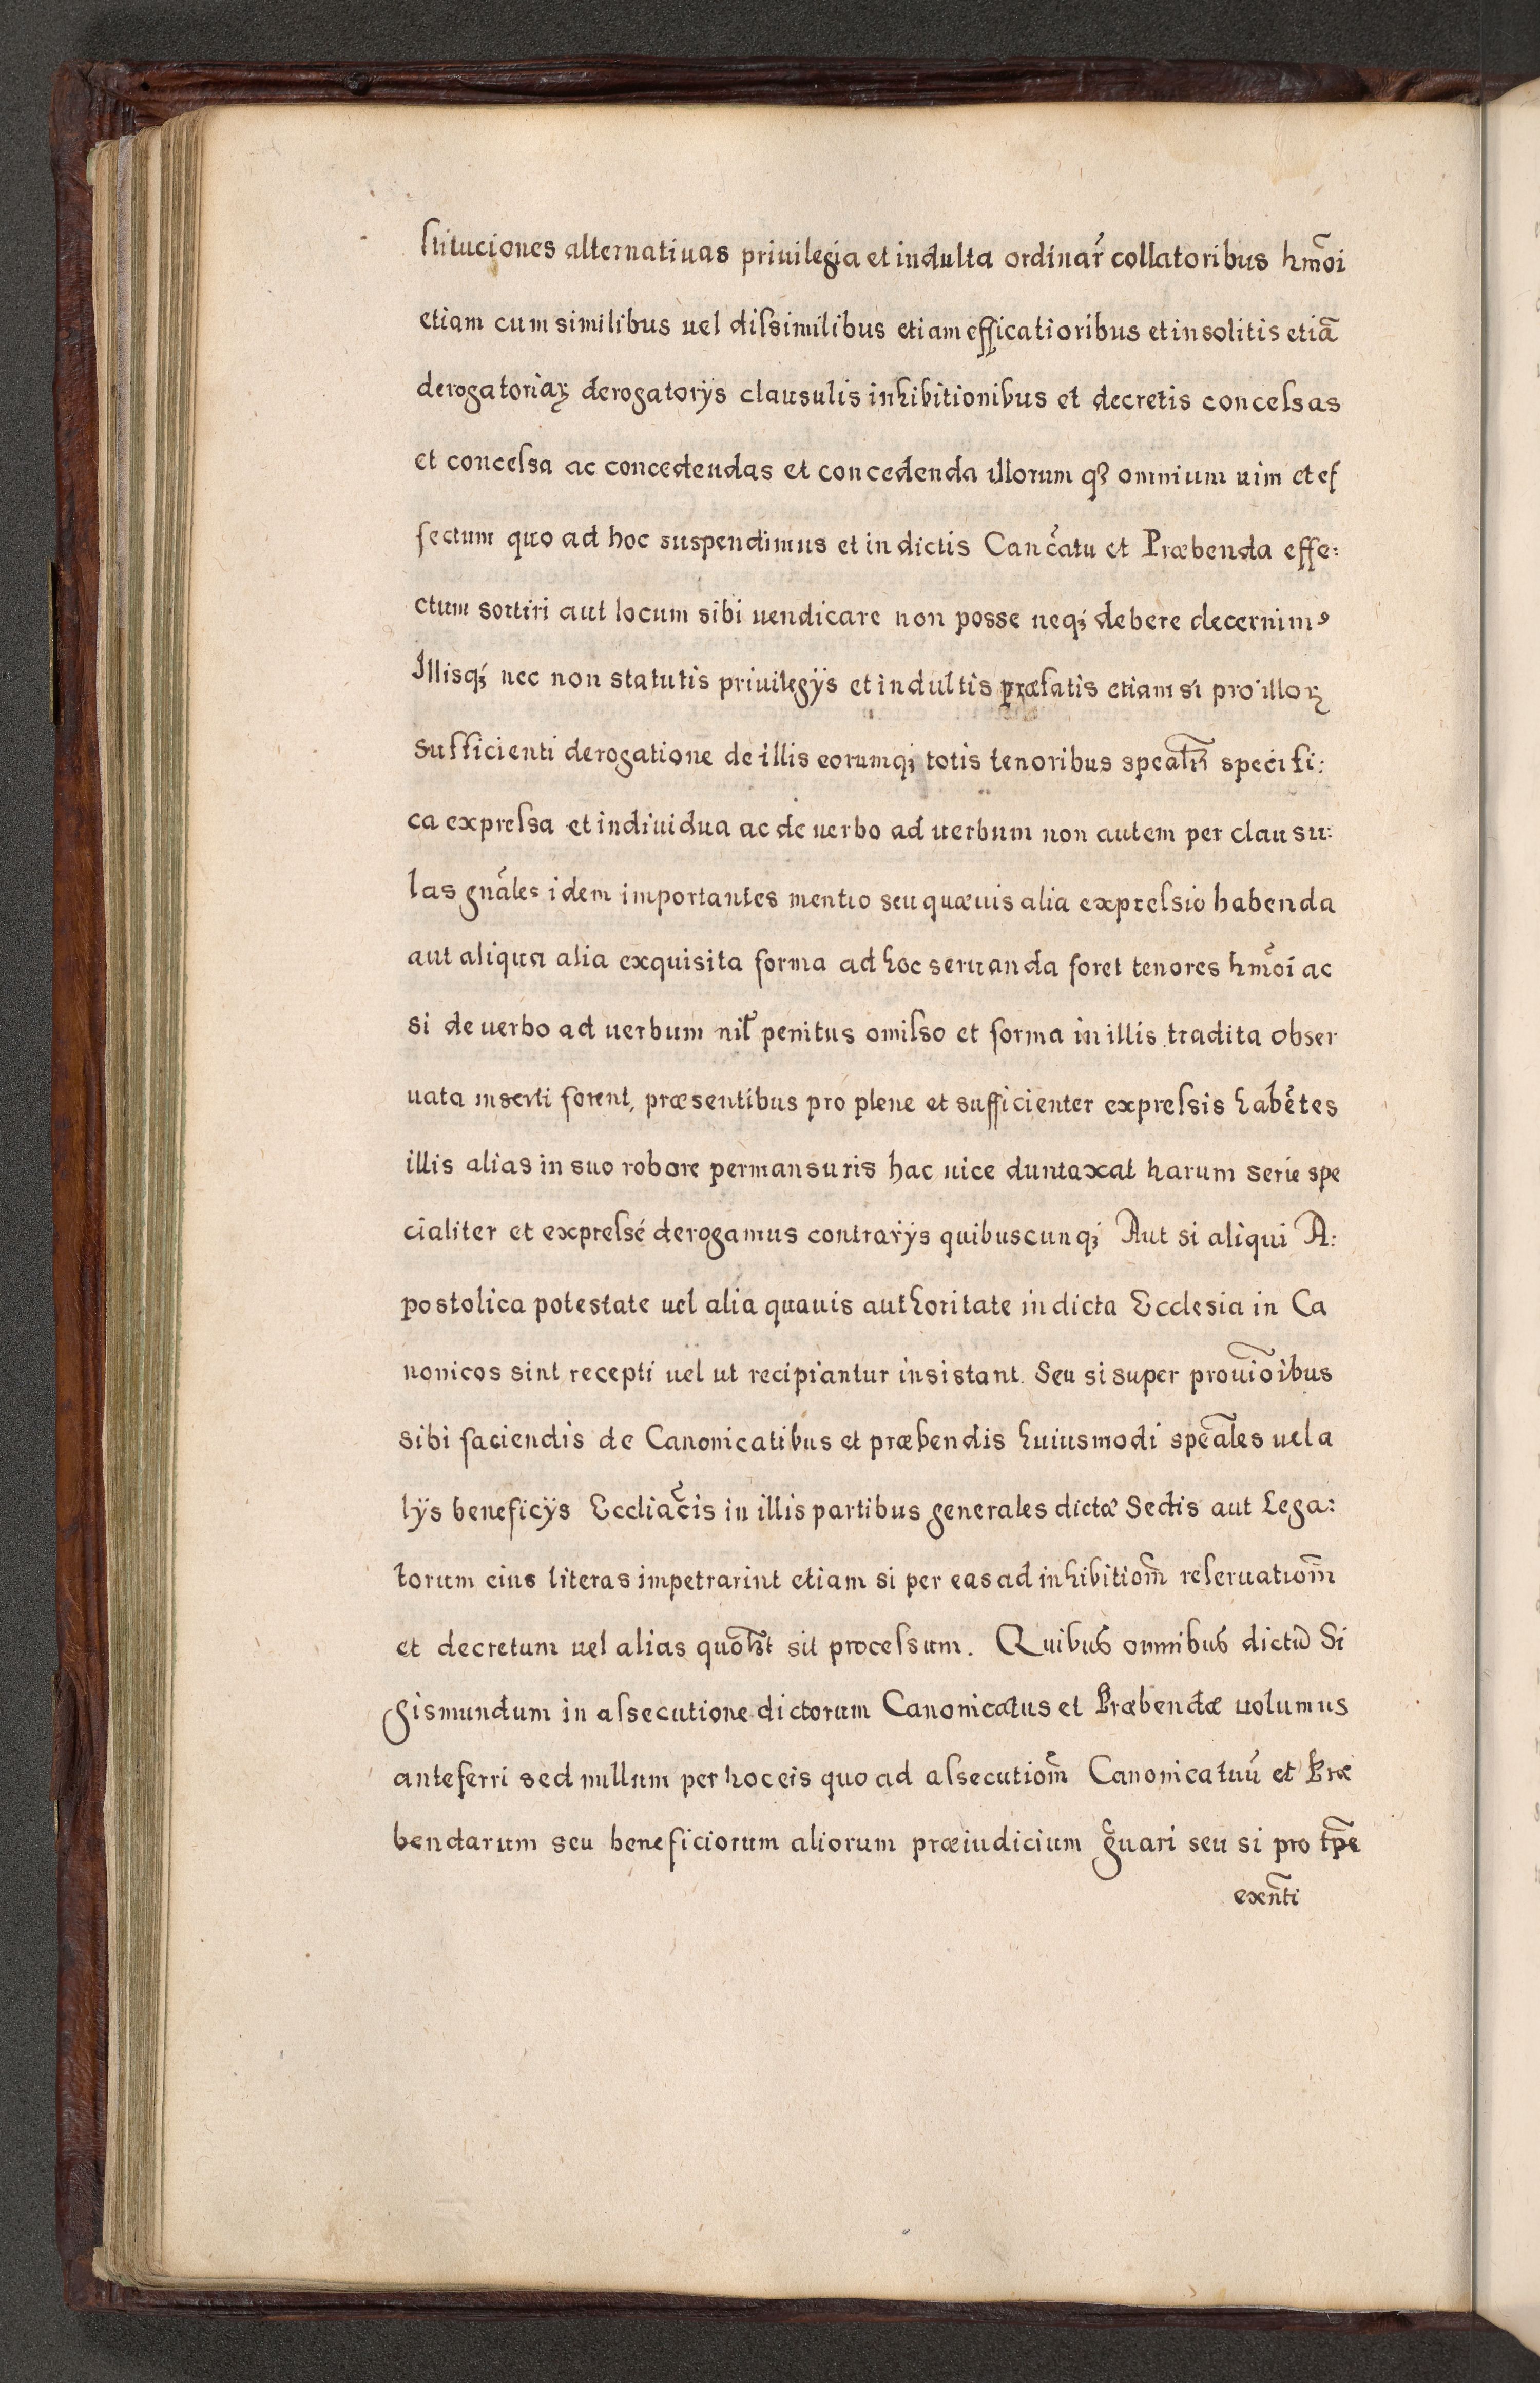 ſtituciones alternatiuas priuilegia et indulta ordinar̃ collatoribus hmõi
etiam cum similibus uel diſsimilibus etiam efficatioribus et insolitis etiã
derogatoriaꝝ derogatorÿs clausulis inhibitionibus et decretis conceſsas
et conceſsa ac concedendas et concedenda illorum qꝫ omnium uim et ef
fectum quo ad hoc suspendimus et in dictis Cano͠catu et Præbenda effe:
ctum sortiri aut locum sibi uendicare non posse neqꝫ debere decernimꝰ
Illisqꝫ nec non statutis priuilegÿs et indultis præfatis etiam si pro illoꝝ
sufficienti derogatione de illis eorumqꝫ totis tenoribus spealr̃ specifi:
ca expreſsa et indiuidua ac de uerbo ad uerbum non autem per clausu:
las gnãles idem importantes mentio seu quæuis alia expreſsio habenda
aut aliqua alia exquisita forma ad hoc seruanda foret tenores hmõi ac
si de uerbo ad uerbum nil̃ penitus omiſso et forma in illis tradita obser
uata inserti forent, præsentibus pro plene et sufficienter expreſsis habẽtes
illis alias in suo robore permansuris hac uice duntaxat harum serie spe
cialiter et expreſsé derogamus contrarÿs quibuscunqꝫ Aut si aliqui A:
postolica potestate uel alia quauis authoritate in dicta Ecclesia in Ca
nonicos sint recepti uel ut recipiantur insistant. Seu si super prouĩoibus
sibi faciendis de Canonicatibus et præbendis huiusmodi speãles uel a
lÿs beneficÿs Eccliac̃is in illis partibus generales dictæ Sedis aut Lega:
torum eius literas impetrarint etiam si per eas ad inhibitiom̃ reſeruatiom̃
et decretum uel alias quom̃lt sit proceſsum. Quibus omnibus dictũ Si
gismundum in aſsecutione dictorum Canonicatus et Præbendæ uolumus
anteferri sed nullum per hoc eis quo ad aſsecutiom̃ Canonicatuũ et Præ
bendarum seu beneficiorum aliorum præiudicium g̃nari seu si pro tp̃e
exñti